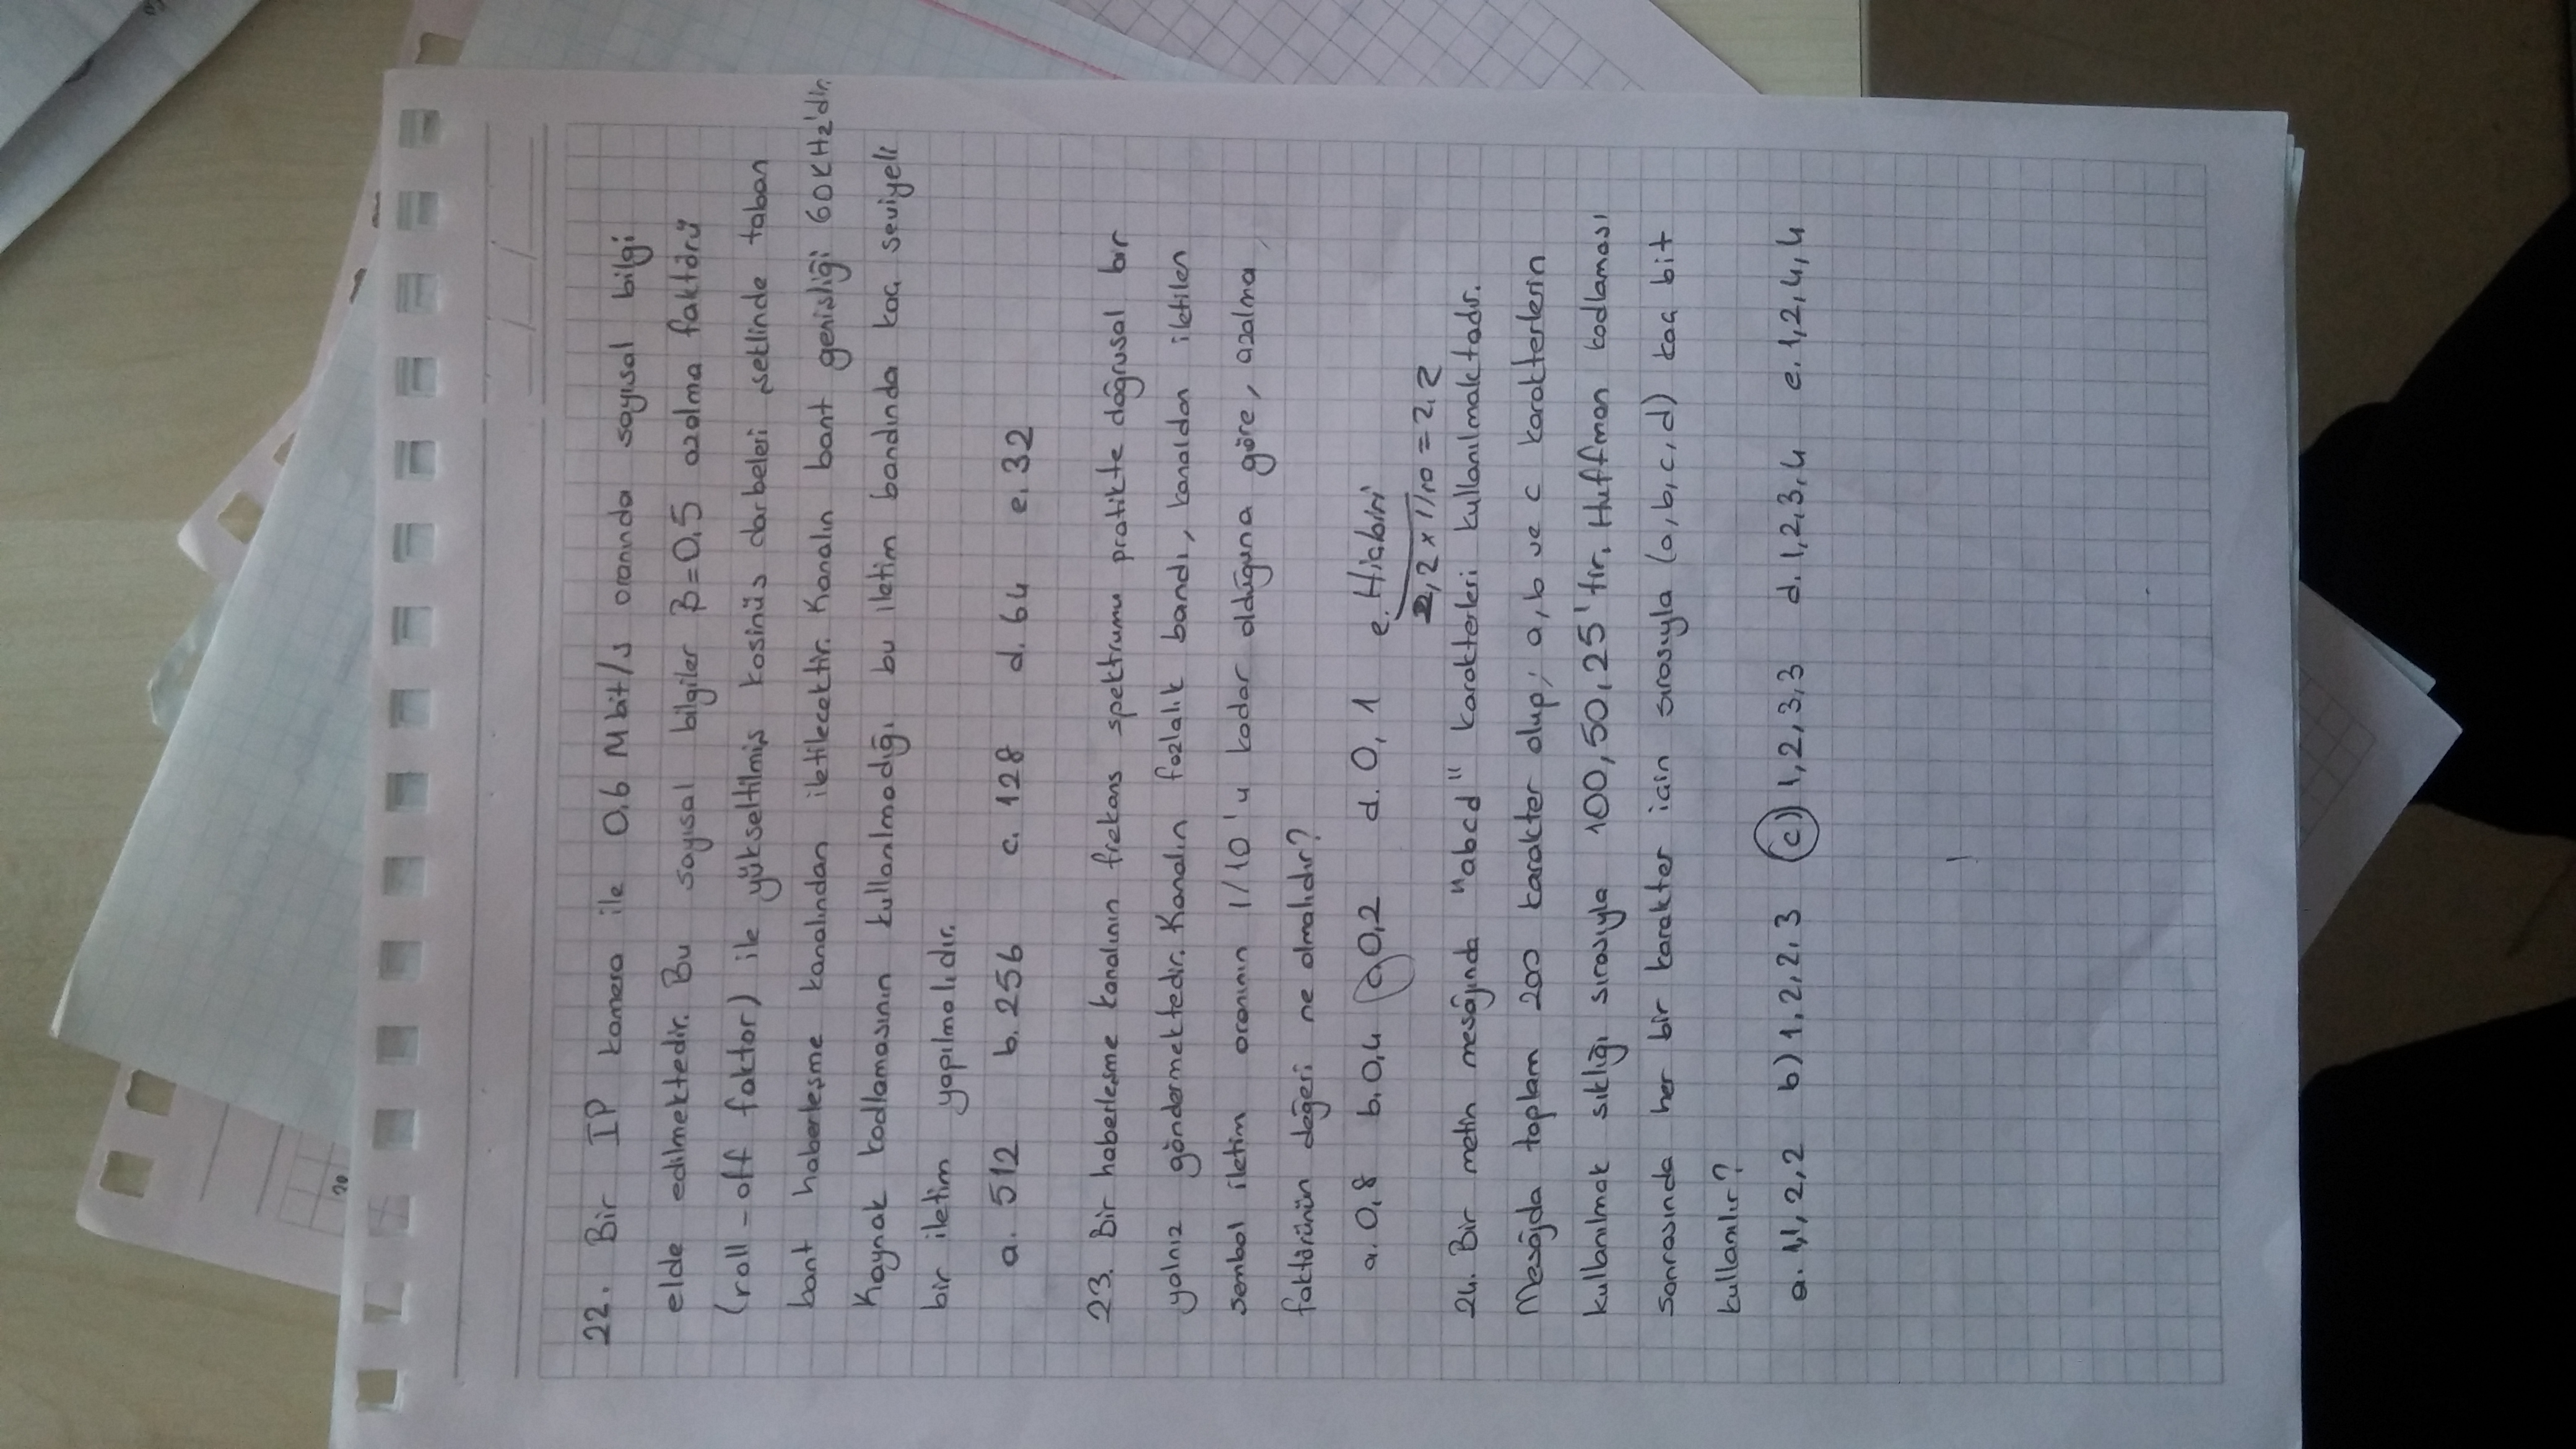 20
22. Bir IP kamera ile 0,6 Mbit/s oranında sayısal bilgi
elde edilmektedir. Bu sayısal bilgiler β=0.5 azalma faktörü
(roll-off faktor) ile yükseltilmiş kosinüs darbeleri şeklinde taban
bant haberleşme kanalından iletilecektir. Kanalın bant genişliği 60KHz'dir.
Kaynak kodlamasının kullanılmadığı bu iletim bandında kaç seviyeli
bir iletim yapılmalıdır.
a. 512 b. 256 c. 128 d. 64 e. 32
23. Bir haberleşme kanalının frekans spektrumu pratikte doğrusal bir
yalnız göndermektedir. Kanalın fazlalık bandı, kanaldan iletilen
sembol iletim oranının 1/10'u kadar olduğuna göre, azalma
faktörünün değeri ne olmalıdır?
a. 0,8 b. 0,4 c) 0,2 d. 0,1 e. Hiçbiri
2,2 x 1/10 = 2,2
24. Bir metin mesajında "abcd" karakterleri kullanılmaktadır.
Mesajda toplam 200 karakter olup; a, b ve c karakterlerin
kullanılmak sıklığı sırasıyla 100, 50, 25'tir. Huffman kodlaması
sonrasında her bir karakter için sırasıyla (a,b,c,d) kaç bit
kullanılır?
a. 1,1, 2, 2 b) 1, 2, 2, 3 c) 1, 2, 3, 3 d. 1, 2, 3, 4 e. 1, 2, 4, 4